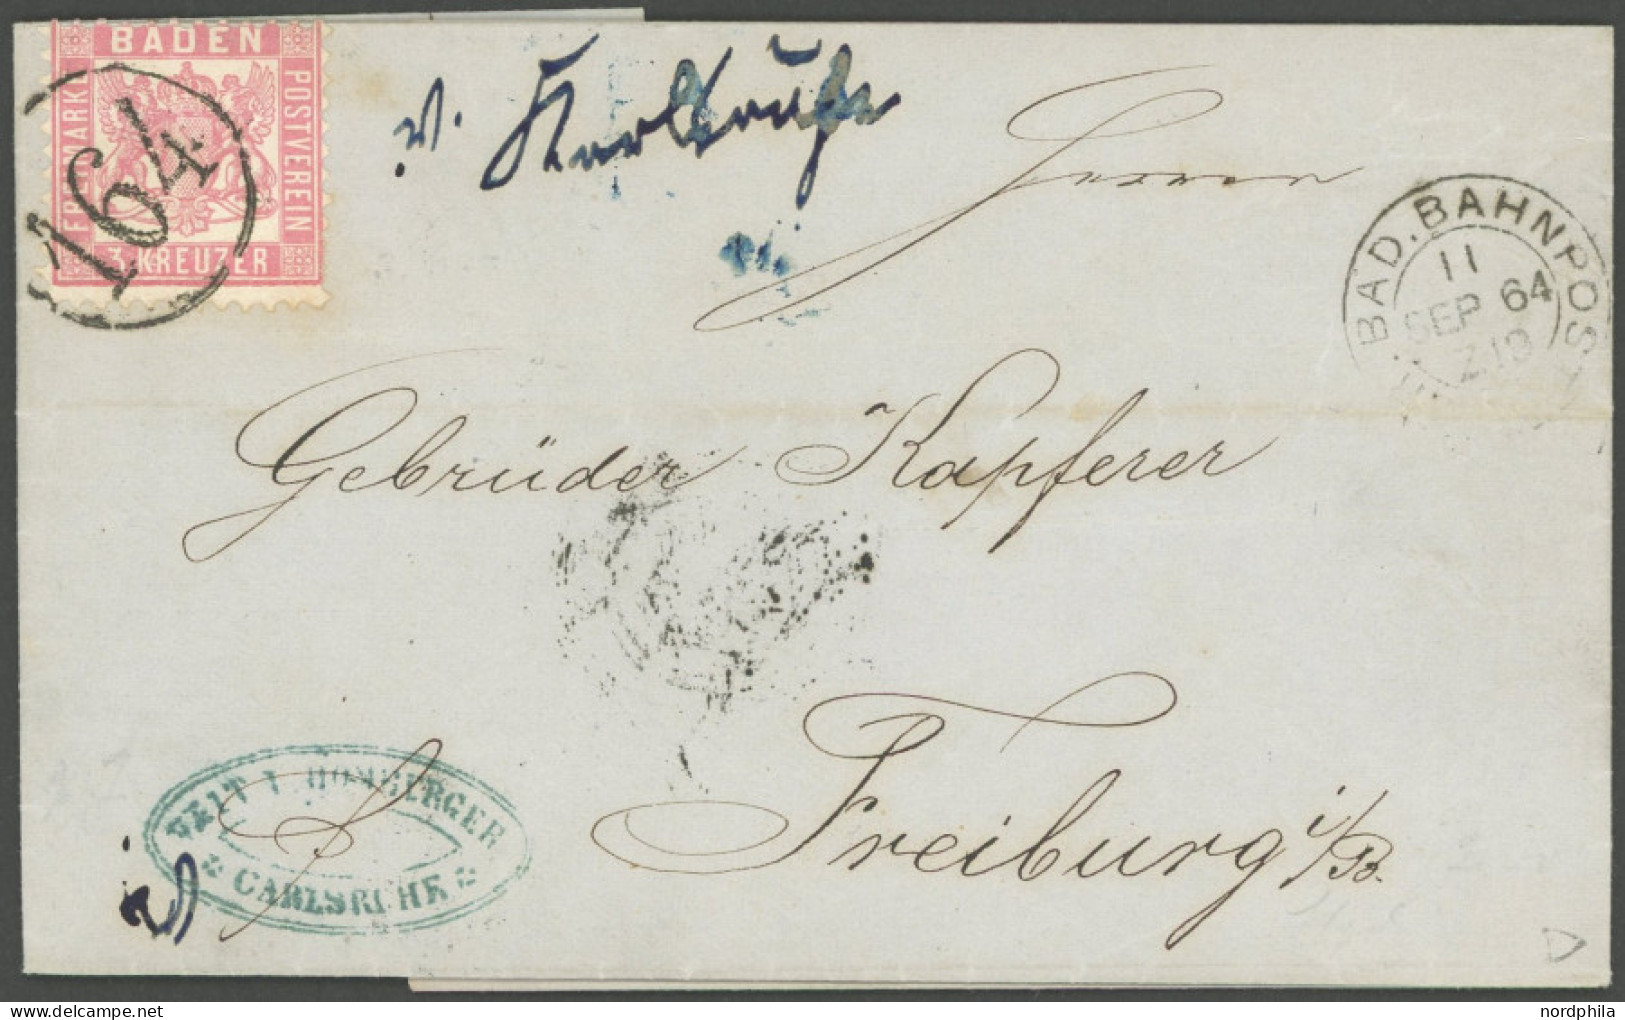 BADEN
FREIMARKE
POSTVEREIN
3 KREUZER
164
v. Karlsruhe
Herren
BAD. BAHNPOST
11
SEP 64
Z.10
Gebrüder Kapferer
Freiburg i/B.
VEIT L HOMBURGER
CARLSRUHE
nordphila